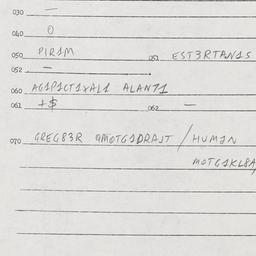 030 —
040 0
050 PIR1M 051 EST3RTAN1S
052 —
060 AG1P1CT1XAL1 ALANT1
061 +$ 062 —
070 GREG83R 9MOTG1DRAJT / HUM1N
MOTG1KL8A,